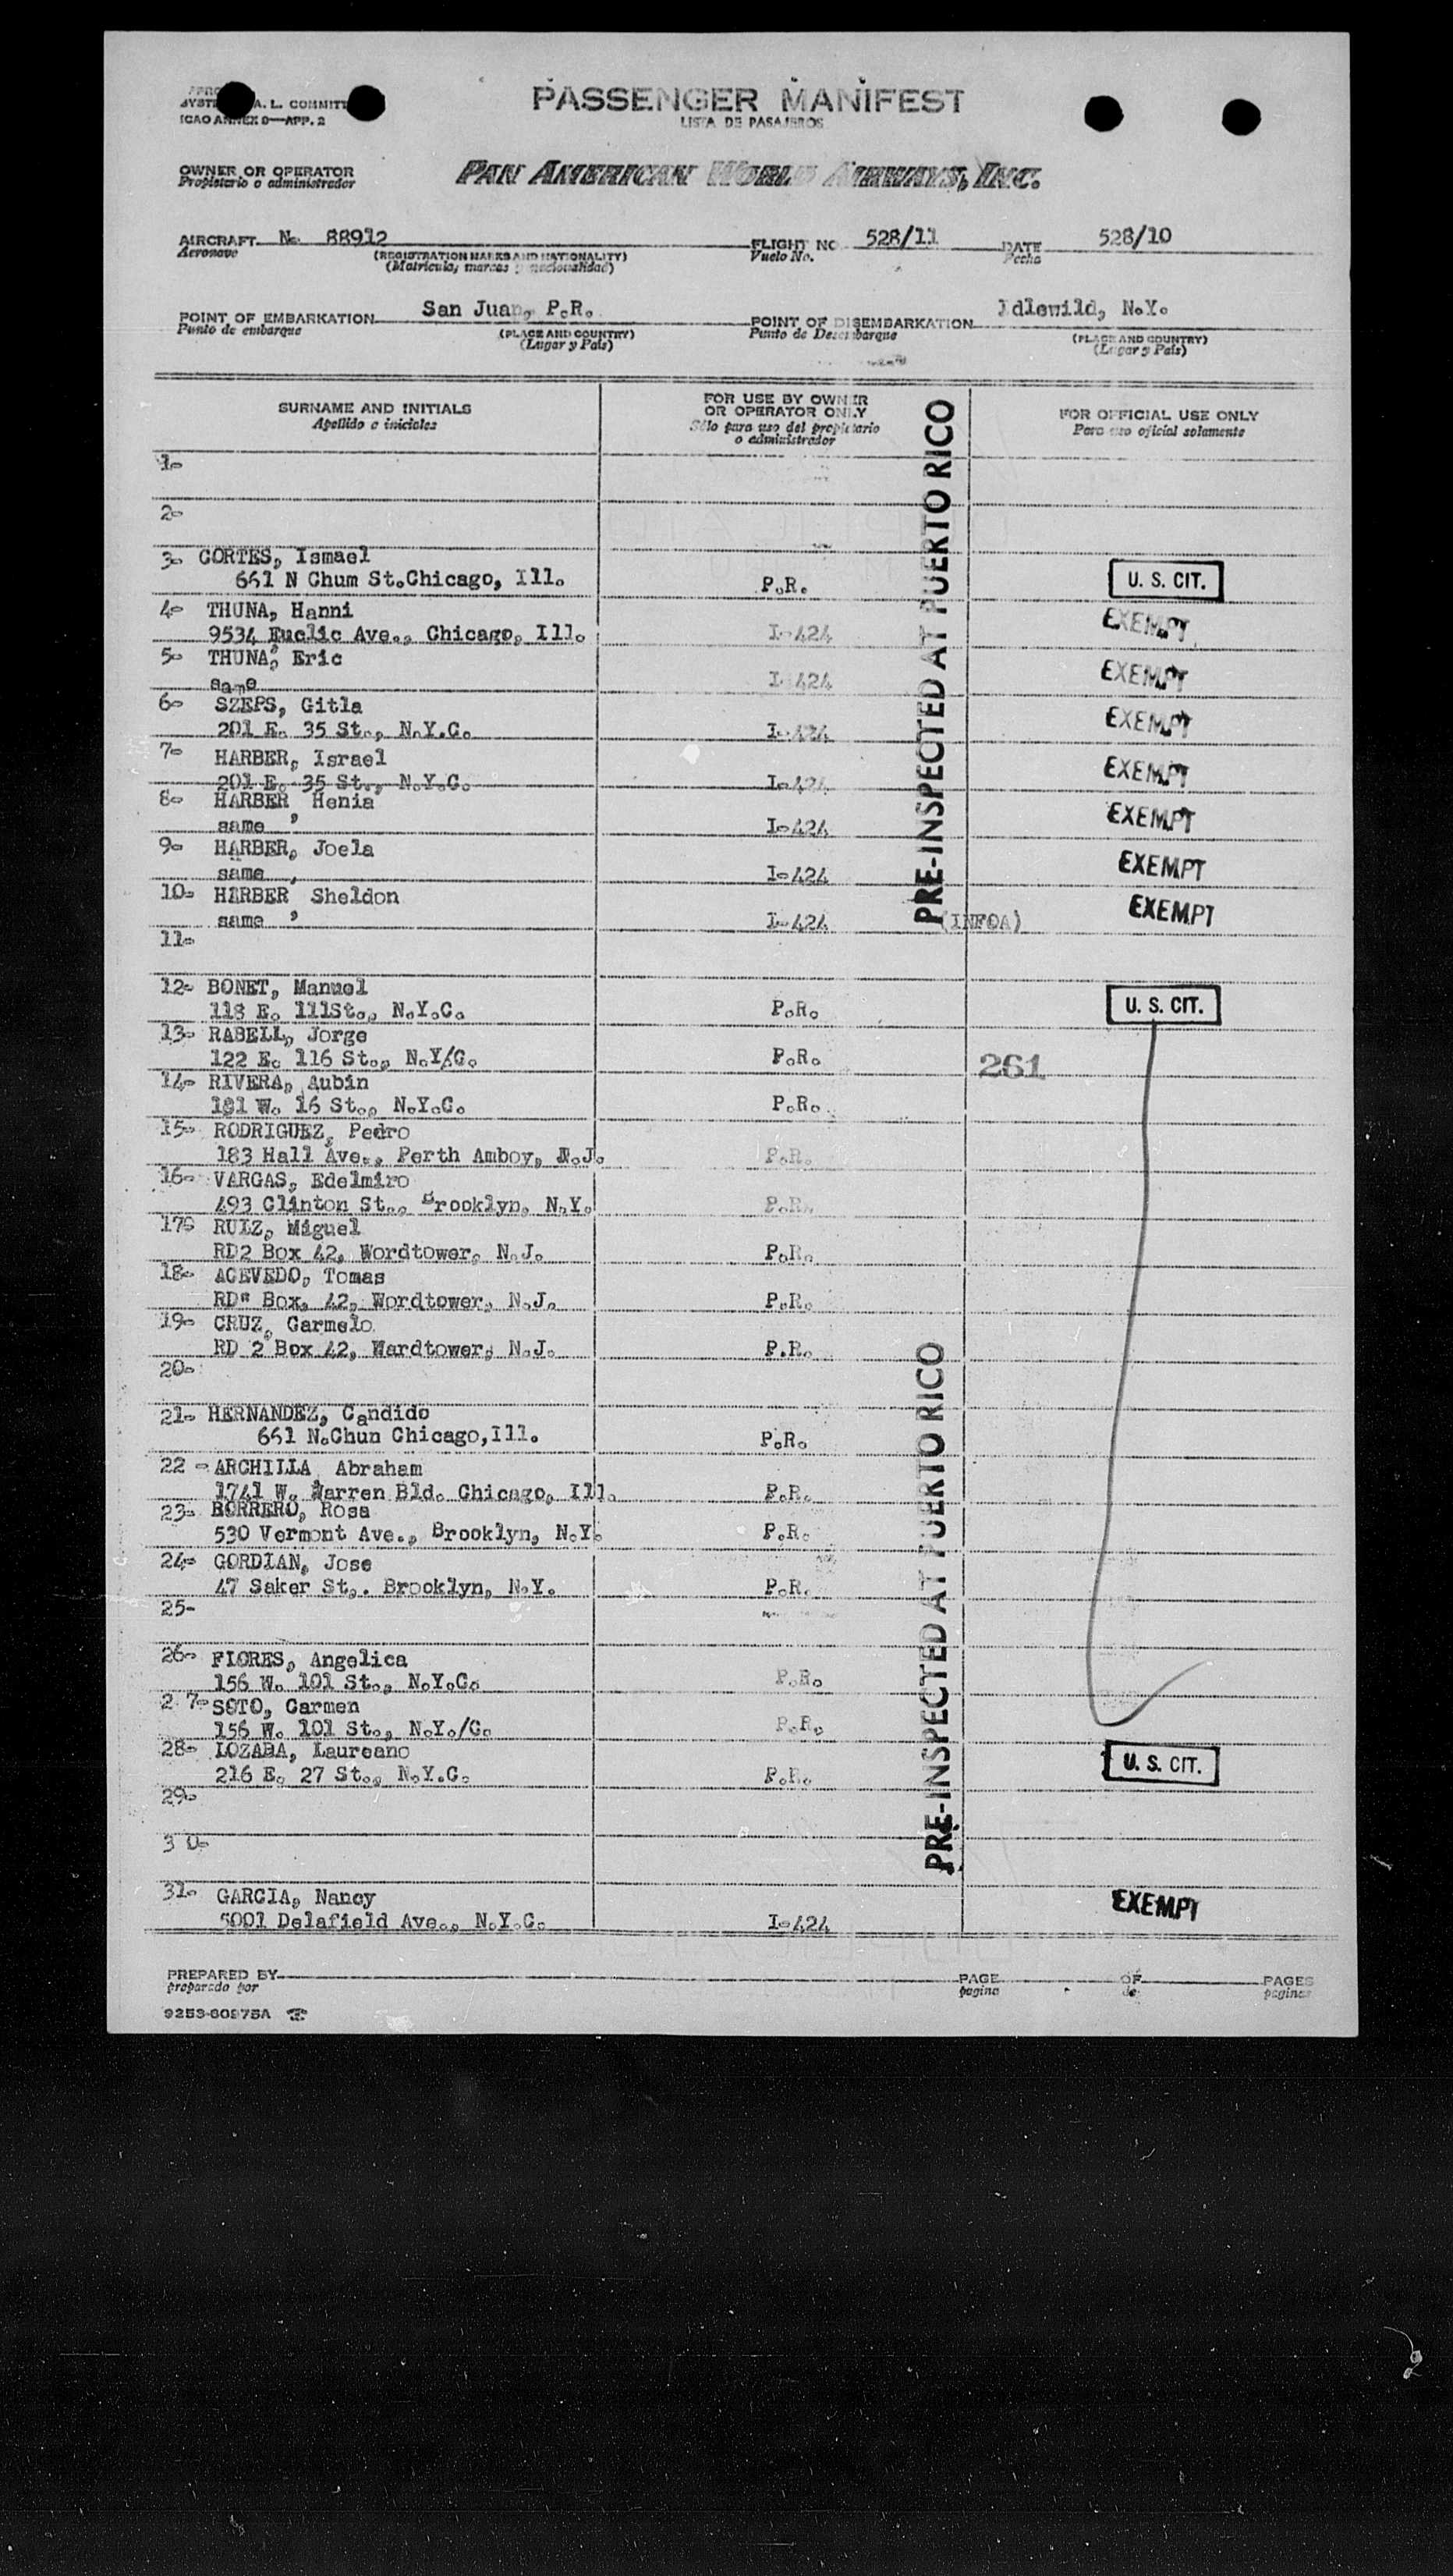 PASSENGER MANIFEST
LISTA DE PASAJEROS
A. L. COMMITT
ICAO ANNEX 9—APP. 2
OWNER OR OPERATOR
Propietario o administrador
PAN AMERICAN WORLD AIRWAYS, INC.
AIRCRAFT N. 88912 FLIGHT NO 528/11 DATE 528/10
Aeronave (REGISTRATION MARKS AND NATIONALITY) Vuelo No. Fecha
(Matricula, marcas y nacionalidad)
POINT OF EMBARKATION San Juan, P.R. POINT OF DISEMBARKATION Idlewild, N.Y.
Punto de embarque (PLACE AND COUNTRY) Punto de Desembarque (PLACE AND COUNTRY)
(Lugar y País) (Lugar y País)
SURNAME AND INITIALS FOR USE BY OWNER OR OPERATOR ONLY FOR OFFICIAL USE ONLY
Apellido e iniciales Sólo para uso del propietario o administrador Para uso oficial solamente
PRE-INSPECTED AT PUERTO RICO
1-
2-
3- CORTES, Ismael
661 N Chum St.Chicago, Ill. P.R. U. S. CIT.
4- THUNA, Hanni
9534 Euclic Ave., Chicago, Ill. I-424 EXEMPT
5- THUNA, Eric
same I-424 EXEMPT
6- SZEPS, Gitla
201 E. 35 St., N.Y.C. I-424 EXEMPT
7- HARBER, Israel
201 E. 35 St., N.Y.C. I-424 EXEMPT
8- HARBER, Henia
same I-424 EXEMPT
9- HARBER, Joela
same I-424 EXEMPT
10- HARBER, Sheldon
same I-424 (INFOA) EXEMPT
11-
12- BONET, Manuel
118 E. 111St., N.Y.C. P.R. U. S. CIT.
13- RABELL, Jorge
122 E. 116 St., N.Y/C. P.R. 261
14- RIVERA, Aubin
181 W. 16 St., N.Y.C. P.R.
15- RODRIGUEZ, Pedro
183 Hall Ave., Perth Amboy, N.J. P.R.
16- VARGAS, Edelmiro
493 Clinton St., Brooklyn, N.Y. P.R.
17- RUIZ, Miguel
RD2 Box 42, Wordtower, N.J. P.R.
18- ACEVEDO, Tomas
RD" Box, 42, Wordtower, N.J. P.R.
19- CRUZ, Carmelo
RD 2 Box 42, Wardtower, N.J. P.R.
20-
21- HERNANDEZ, Candido
661 N.Chun Chicago,Ill. P.R.
22 - ARCHILLA, Abraham
1741 W. Warren Bld. Chicago, Ill. P.R.
23- BORRERO, Rosa
530 Vermont Ave., Brooklyn, N.Y. P.R.
24- GORDIAN, Jose
47 Saker St,. Brooklyn, N.Y. P.R.
25-
26- FLORES, Angelica
156 W. 101 St., N.Y.C. P.R.
2 7- SOTO, Carmen
156 W. 101 St., N.Y./C. P.R.
28- LOZABA, Laureano
216 E. 27 St., N.Y.C. P.R. U. S. CIT.
29-
3 0-
PRE-INSPECTED AT PUERTO RICO
31- GARCIA, Nancy
5001 Delafield Ave., N.Y.C. I-424 EXEMPT
PREPARED BY PAGE OF PAGES
preparado por pagina de paginas
9253-60975A